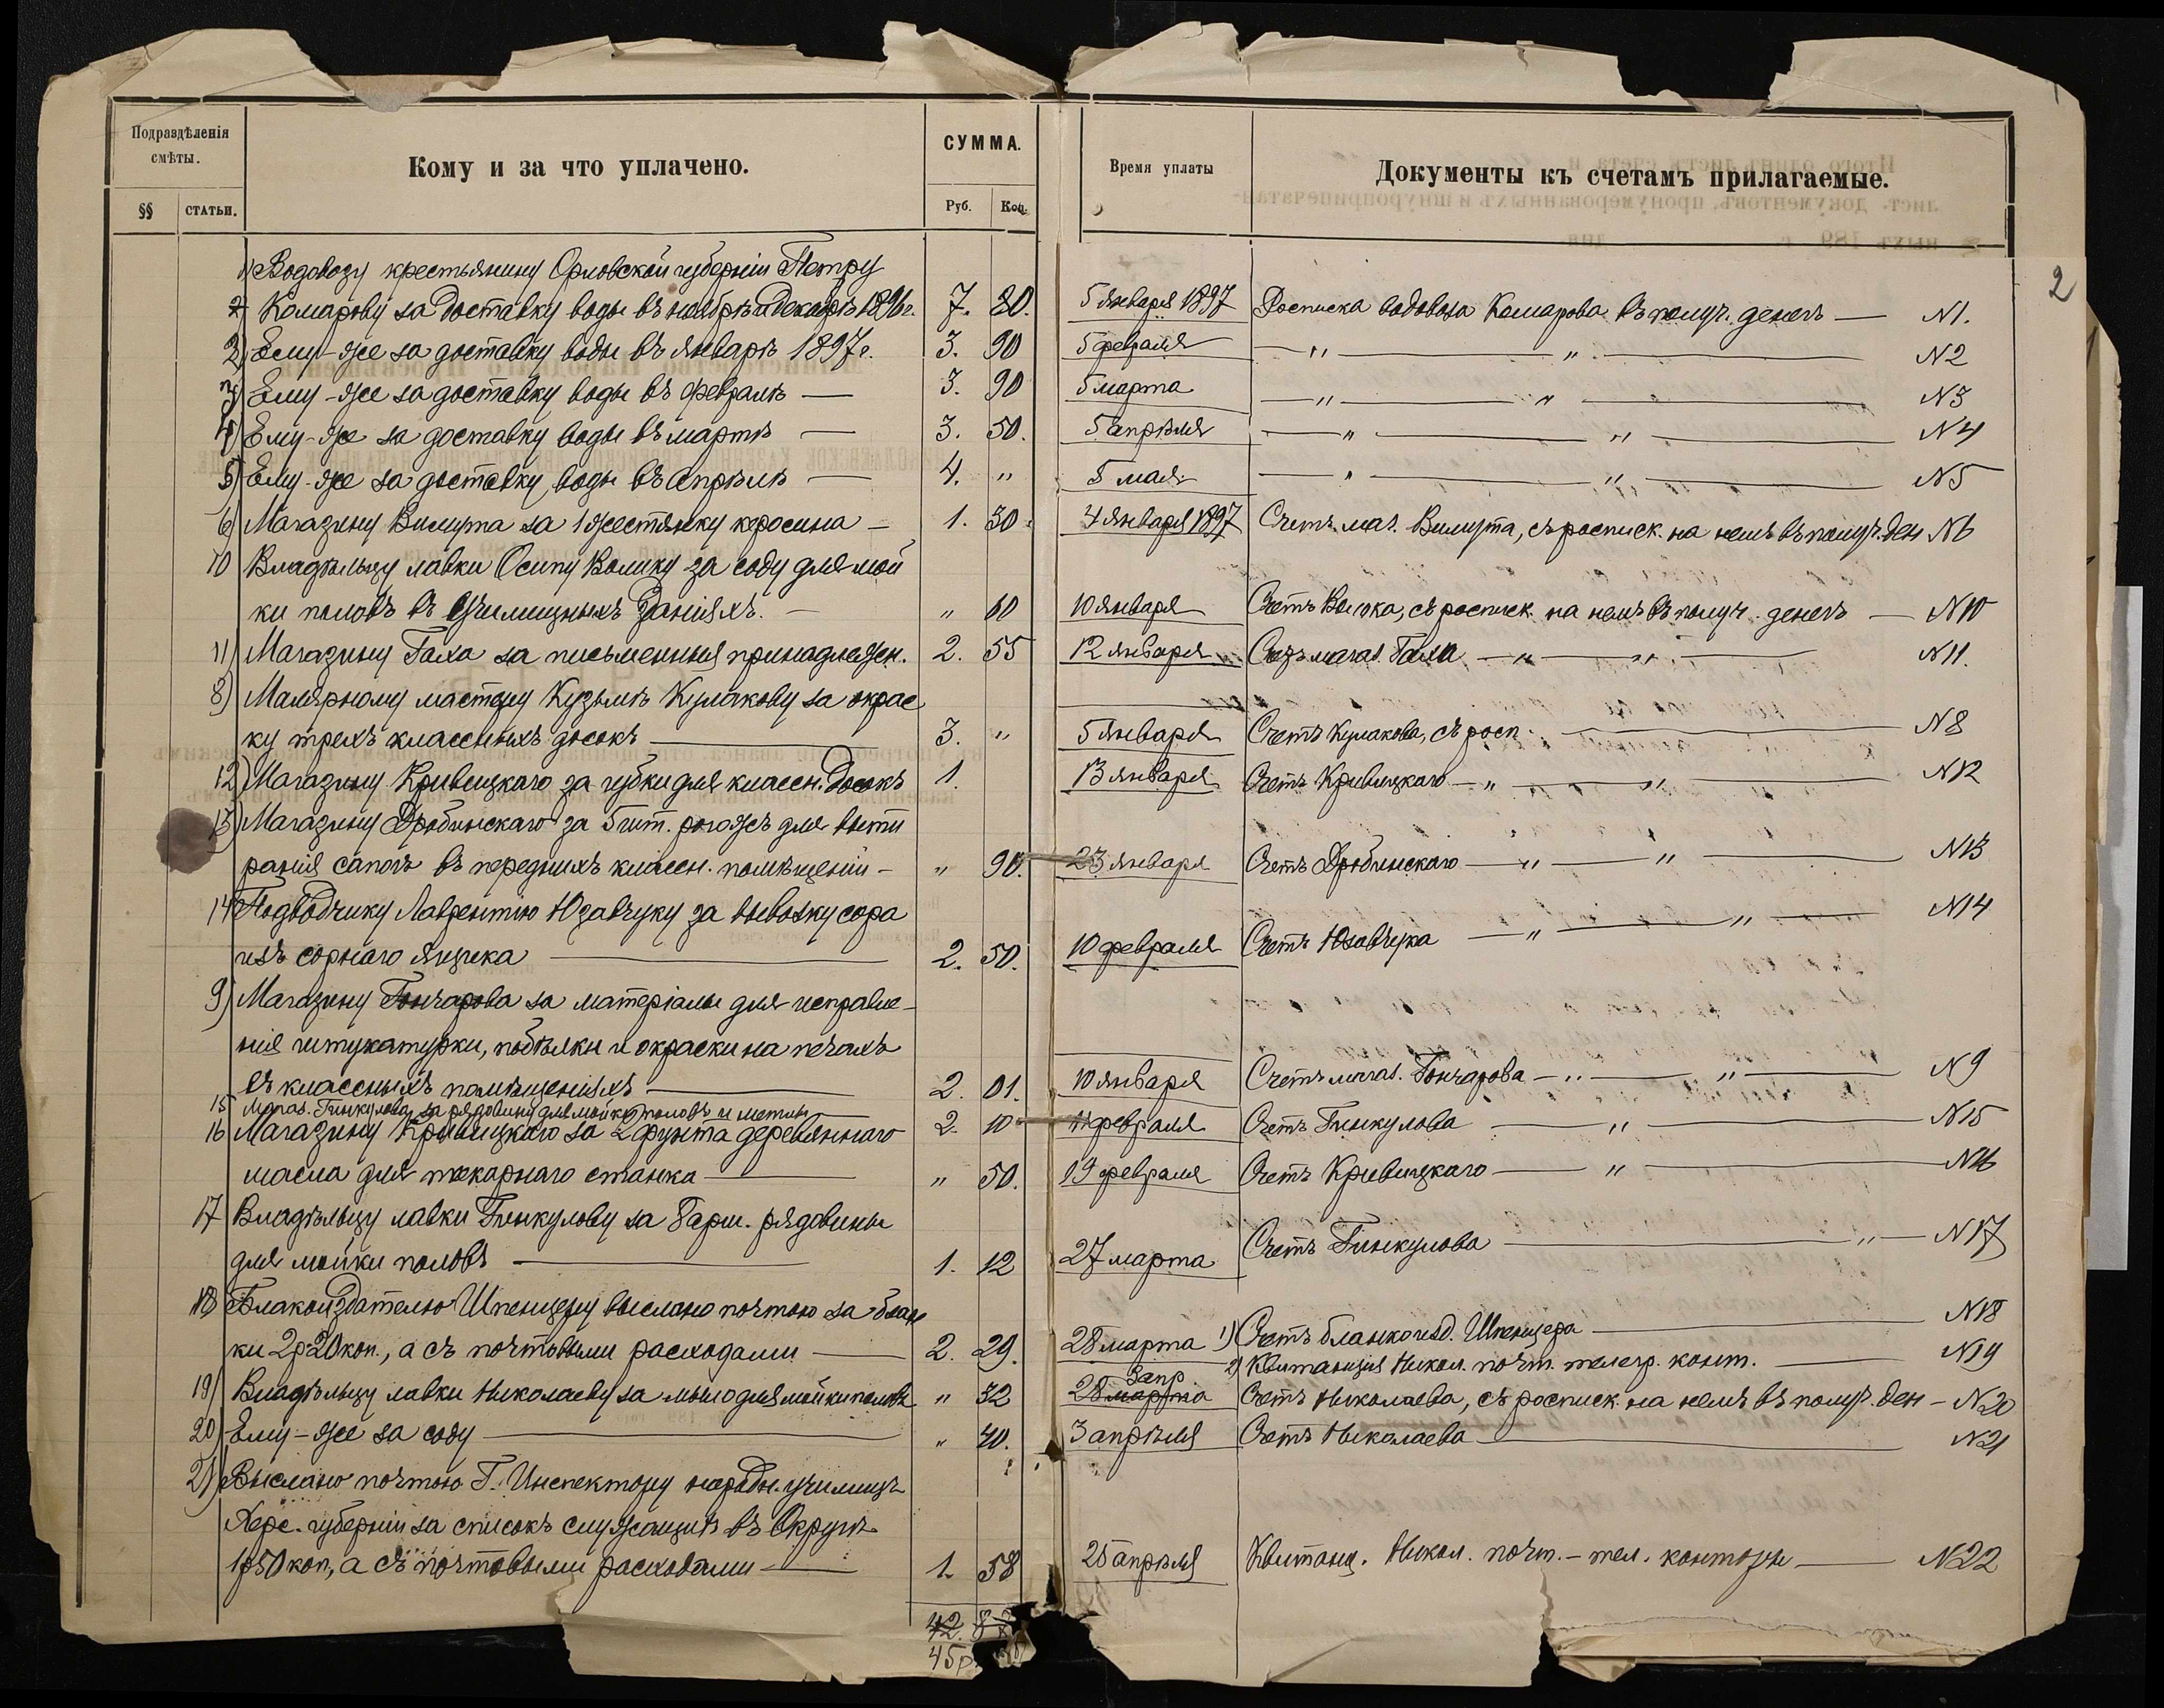 2
Подраздѣленія
смѣты.
§§
СТАТЬИ.
Кому и за что уплачено.
СУММА.
Руб.
Коп.
Время уплаты
Документы къ счетамъ прилагаемые.
1) Водовозу крестьянину Орловской губерніи Петру
Комарову за доставку воды въ ноябрѣ и декабрѣ 1896 г. 7. 80. 5 Января 1897 Росписка водовоза Комарова въ получ. денегъ — N1.
2) Ему-же за доставку воды въ январѣ 1897 г. 3. 90 5 февраля — " — " — N2
3) Ему-же за доставку воды въ февралѣ — 3. 90 5 марта — " — " — N3
4) Ему-же за доставку воды въ мартѣ — 3. 50. 5 апрѣля — " — " — N4
5) Ему-же за доставку воды въ апрѣлѣ — 4. " 5 мая — " — " — N5
6) Магазину Вилирта за 1 жестянку керосина — 1. 30. 4 Января 1897 Счетъ маг. Вилирта, съ росписк. на немъ въ получ. ден N6
10 Владѣльцу лавки Осипу Волику за соду для мой
ки половъ въ училищныхъ зданіяхъ. — " 60 10 января Счетъ Волика, съ росписк. на немъ въ получ. денегъ — N10
11) Магазину Гаха за письменныя принадлежн. 2. 55 12 января Счетъ магаз. Гаха — " — " — N11.
8) Малярному мастеру Кузьмѣ Кулакову за окрас
ку трехъ классныхъ досокъ — 3. " 5 Января Счетъ Кулакова, съ росп. — N8
12) Магазину Кривицкаго за губки для классн. досокъ 1. 13 января Счетъ Кривицкаго — " — " — N12
13) Магазину Дробинскаго за 5 шт. рогожъ для выти
ранія сапогъ въ переднихъ классн. помѣщеній — " 90. 23 января Счетъ Дробинскаго — " — " — N13
14 Подводчику Лаврентію Юзавчуку за вывозку сора
изъ сорнаго ящика — 2. 50. 10 февраля Счетъ Юзавчука — " — " — N14
9) Магазину Гончарова за матеріалы для исправле-
нія штукатурки, побѣлки и окраски на печахъ
въ классныхъ помѣщеніяхъ — 2. 01. 10 января Счетъ магаз. Гончарова — " — " — N9
15 Магаз. Гинкулова за рядовину для мойки половъ и метлы — 2. 10 11 февраля Счетъ Гинкулова — " — N15
16 Магазину Кривицкаго за 2 фунта деревяннаго
масла для токарнаго станка — " 50. 19 февраля Счетъ Кривицкаго — " — N16
17 Владѣльцу лавки Гинкулову за 8 арш. рядовины
для мойки половъ — 1. 12 27 марта Счетъ Гинкулова — " — N17
18) Бланкоиздателю Шпенцеру выслано почтою за блан
ки 2 р 20 коп., а съ почтовыми расходами — 2. 29. 28 марта 1) Счетъ бланкоизд. Шпенцера — N18
2) Квитанція Никол. почт. телегр. конт. — N19
19) Владѣльцу лавки Николаеву за мыло для мойки половъ " 32 28 марта 3 апр Счетъ Николаева, съ росписк. на немъ въ получ. ден — N20
20) Ему-же за соду — " 40. 3 апрѣля Счетъ Николаева — N21
21) Выслано почтою Г. Инспектору народн. училищъ
Херс. губерніи за списокъ служащихъ въ Округѣ
1 р 50 коп, а съ почтовыми расходами — 1. 58 25 апрѣля Квитанц. Никол. почт. - тел. конторы — N22
42.
45 р.